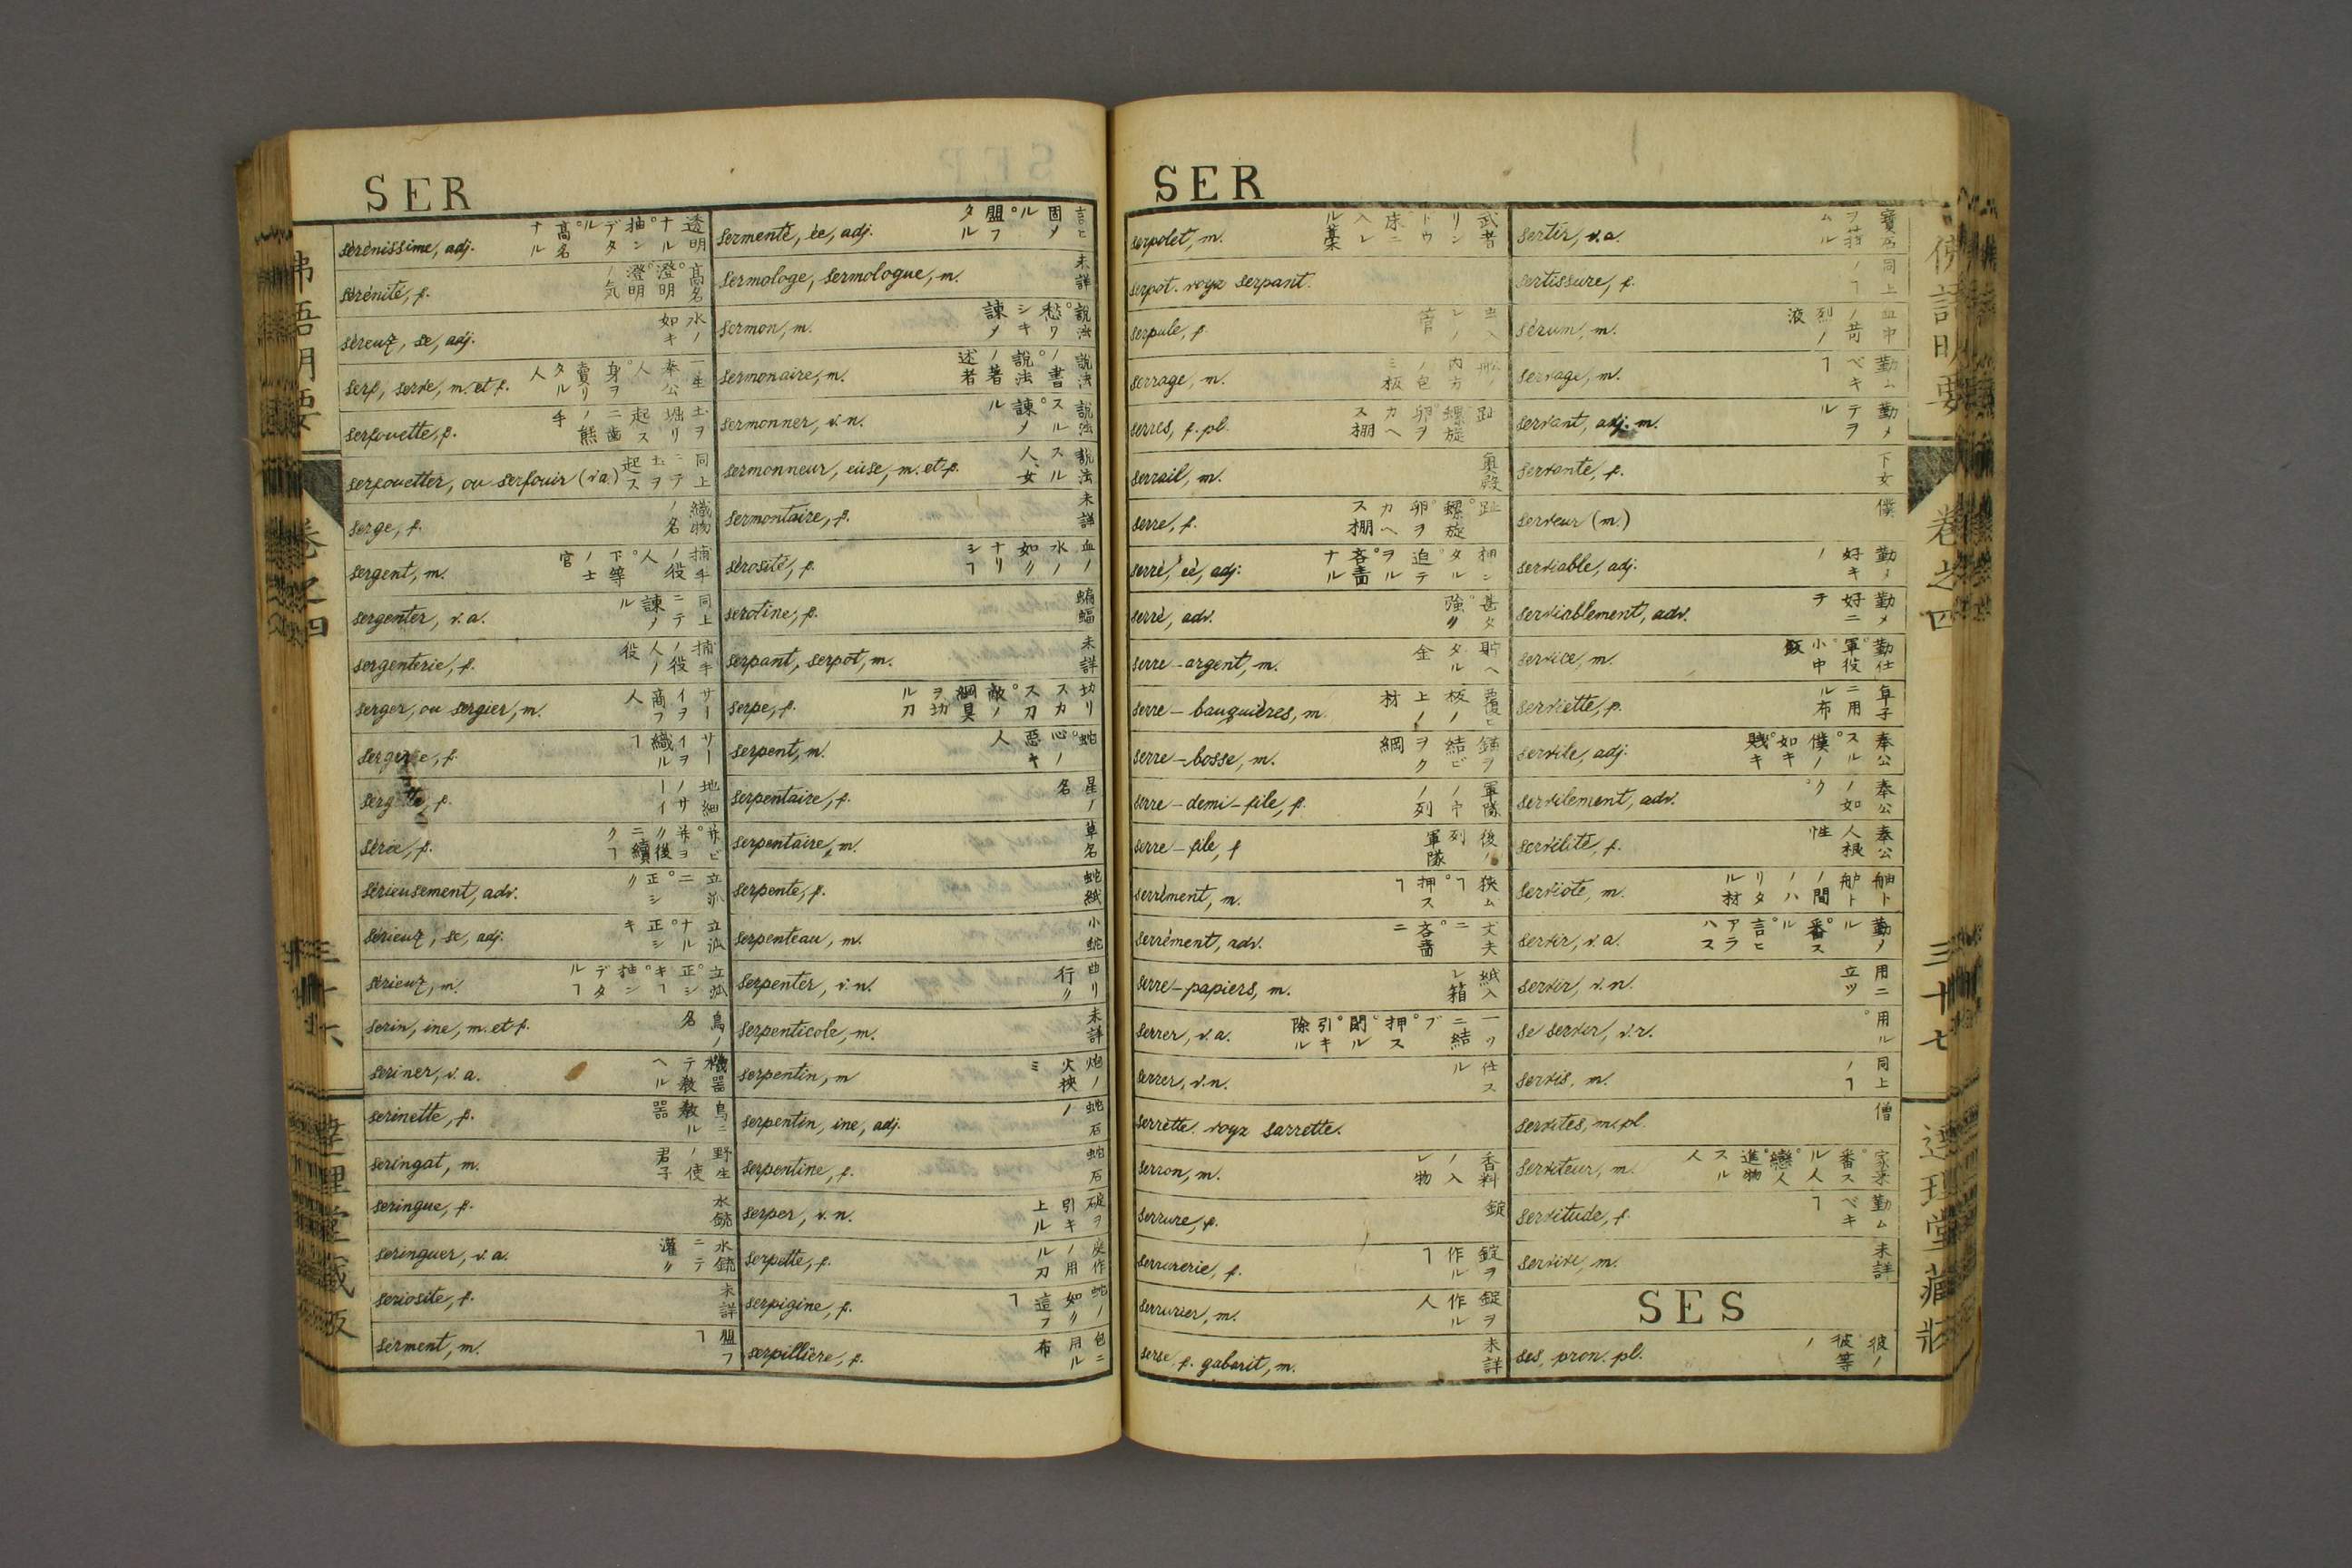 SER
sérénissime, adj. 透明ナル。抽ンデタル。高名ナル
sérénité, f. 高名。澄明。澄明ノ気
séreux, se, adj. 水ノ如キ
serf, serve, m. et f. 一生奉公人。身ヲ賣リタル人
serfouette, f. 土ヲ堀リ起ス二歯ノ熊手
serfouetter, ou serfouir (v.a.) 同上ニテ土ヲ起ス
serge, f. 織物ノ名
sergent, m. 捕手ノ役人。下等ノ士官
sergenter, v.a. 同上ニテ諌メル
sergenterie, f. 捕手ノ役人ノ役
serger, ou sergier, m. サーイヲ商フ人
sergerie, f. サーイヲ織ルヿ
sergette, f. 地細ノサーイ
série, f.
sérieusement, adv. 立派ニ。正シク
sérieux, se, adj. 立派ナル。正シキ
sérieux, m. 立派。正シキヿ。抽ンデタルヿ
serin, ine, m. et f. 鳥ノ名
seriner, v.a. 機器ニテ教ヘル
serinette, f. 鳥ニ教ル器
seringat, m. 野生ノ使君子
seringue, f. 水銃
seringuer, v.a. 水銃ニテ灌グ
seriosite, f. 未詳
serment, m. 盟フヿ
sermenté, ée, adj. 言ヒ固メル。盟フタル
sermologe, sermologue, m. 未詳
sermon, m. 説法。愁ワシキ諌メ
sermonaire, m. 説法ノ書。説法ノ著述者
sermonner, v.n. 説法スル。諌メル
sermonneur, euse, m. et f. 説法スル人、女
sermontaire, f. 未詳
sérosité, f. 血ノ水ノ如クナリシヿ
serotine, f. 蝙蝠
serpant, serpot, m. 未詳
serpe, f. 切リスカス刀。敵ノ綱具ヲ切ル刀
serpent, m. 蛇。心ノ悪キ人
serpentaire, f. 星ノ名
serpentaire, m. 草名
serpente, f. 蛇紙
serpenteau, m. 小蛇
serpenter, v.n. 曲リ行ク
serpenticole, m. 未詳
serpentin, m 炮ノ火挾ミ
serpentin, ine, adj. 蛇石ノ
serpentine, f. 蛇石
serper, v.n. 碇ヲ引キ上ル
serpette, f.
serpigine, f. 蛇ノ如ク這フヿ
serpillière, f. 包ニ用ル布
弗語明要
卷之四
三十六
達理堂蔵版
SER
serpolet, m.
serpot. voyz serpant.
serpule, f.
serrage, m. 船ノ内方ノ包ミ板
serres, f. pl. 趾。螺旋。卵ヲカヘス棚
serrail, m. 奥殿
serre, f. 趾。螺旋。卵ヲカヘス棚
serré, ée, adj. 押シタル。迫テヲル。吝嗇ナル
serré, adv. 甚タ強ク
serre-argent, m. 貯ヘタル金
serre-bauquières, m. 覆ヒ板ノ上ノ材
serre-bosse, m. 錨ヲ結ビヲク綱
serre-demi-file, f. 軍隊ノ中ノ列
serre-file, f 後ノ列軍隊
serrément, m. 狹ムヿ。押スヿ
serrément, adv. 丈夫ニ。吝嗇ニ
serre-papiers, m. 紙入レ箱
serrer, v.a. 一ツニ結ブ。押ス。閉ル。引キ除ル
serrer, v.n.
serrette. voyz sarrette.
serron, m. 香料ノ入レ物
serrure, f. 錠
serrurerie, f. 錠ヲ作ルヿ
serrurier, m. 錠ヲ作ル人
serse, f. gabarit, m. 未詳
sertir, v.a.
sertissure, f. 同上ノヿ
sérum, m.
servage, m. 勤ムベキヿ
servant, adj. m. 勤メテヲル
servante, f. 下女
serveur (m.) 僕
serviable, adj. 勤メ好キノ
serviablement, adv. 勤メ好ニテ
service, m.
serviette, f.
servile, adj. 奉公スル。僕ノ如キ。賎キ
servilement, adv. 奉公ノ如ク。
servilité, f. 奉公人根性
serviote, m.
servir, v.a.
servir, v.n. 用ニ立ツ
se servir, v.r. 用ル。
servis, m. 同上ノヿ
servites, m. pl. 僧
serviteur, m. 家来。番スル人。戀人。進物スル人
servitude, f. 勤ムベキヿ
servive, m. 未詳
SES
ses, pron. pl. 彼ノ。彼等ノ
佛語明要
卷之四
三十七
達理堂蔵版